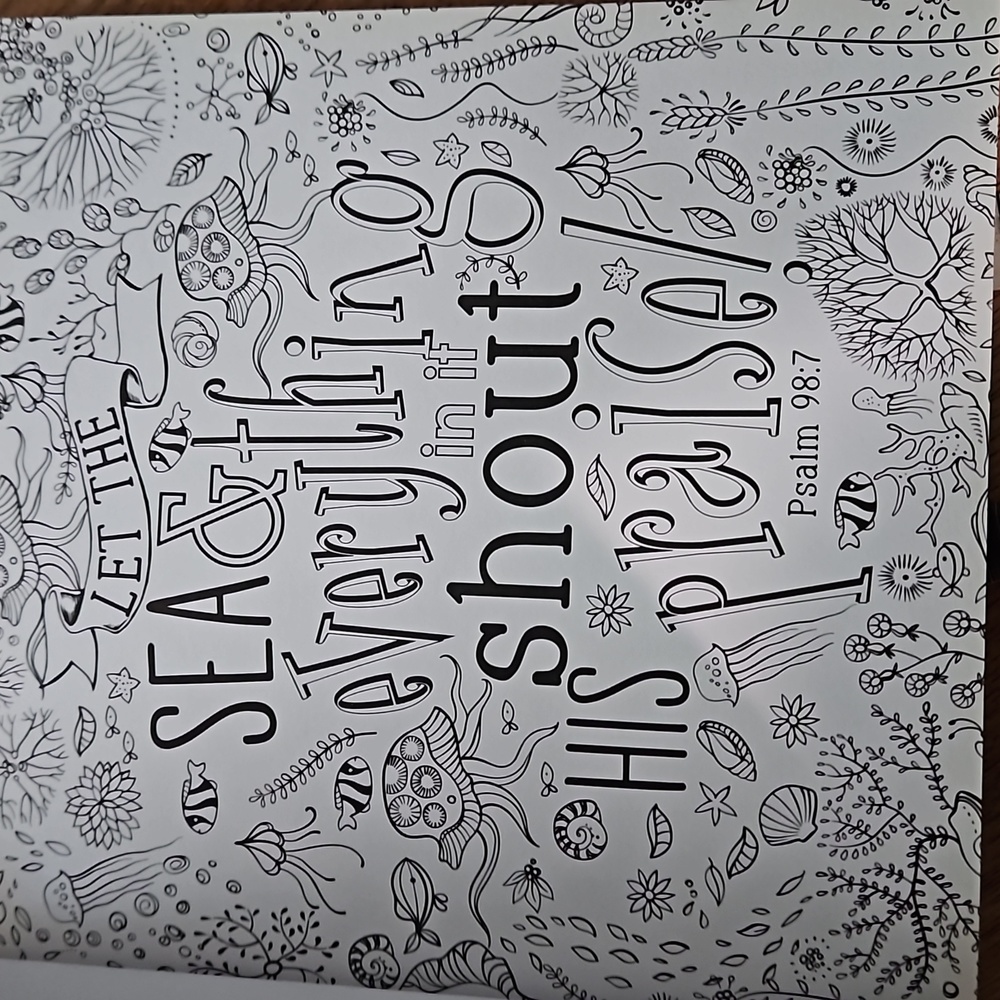 LET THE
SEA &
everything
in it
shout
HIS praise!
Psalm 98:7